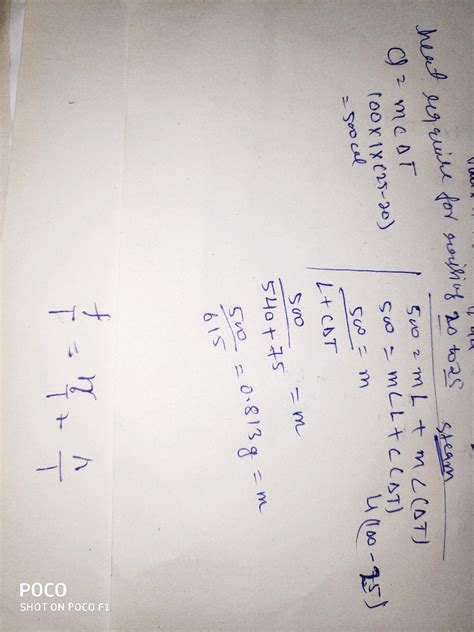 heat require for raising 20 to 25
Q = mcΔT
100×1×(25-20)
= 500 cal
steam
500 = mL + mc(ΔT)
500 = m(L + c(ΔT)
(100 - 25)
500 / L + cΔT = m
500 / 540 + 75 = m
500 / 615 = 0.813g = m
1/v + 1/u = 1/f
POCO
SHOT ON POCO F1